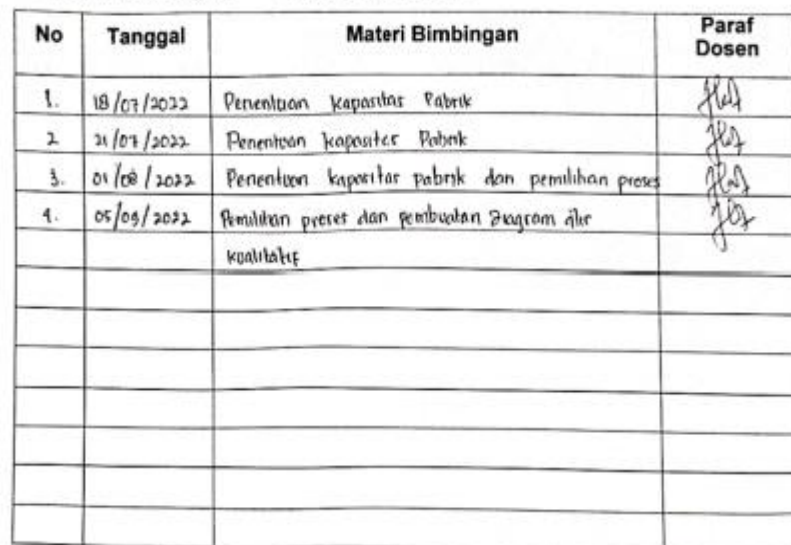 No Tanggal Materi Bimbingan Paraf Dosen
1. 18/07/2022 Penentuan Kapasitas Pabrik
2 21/07/2022 Penentuan Kapasitas Pabrik
3. 01/08/2022 Penentuan kapasitas pabrik dan pemilihan proses
4. 05/09/2022 Pemilihan proses dan pembuatan Diagram alir
kualitatif